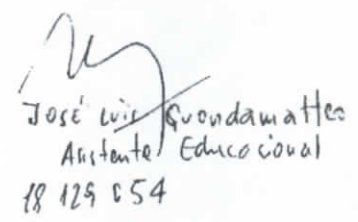 José Luis Guondamatteo
Asistente Educacional
18 129 654